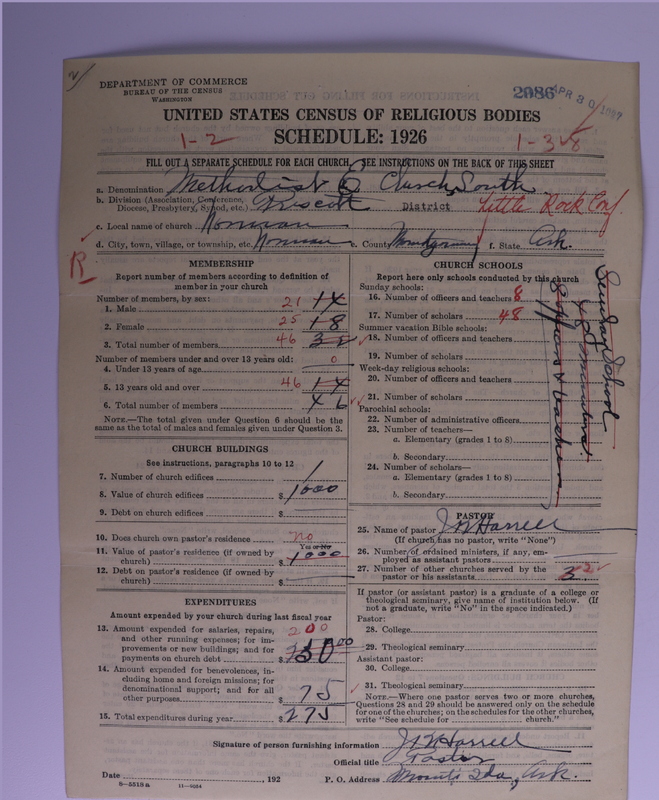 2/
DEPARTMENT OF COMMERCE
BUREAU OF THE CENSUS
WASHINGTON
2086 APR 30 1927
UNITED STATES CENSUS OF RELIGIOUS BODIES
SCHEDULE: 1926
1-2 1-3
FILL OUT A SEPARATE SCHEDULE FOR EACH CHURCH. SEE INSTRUCTIONS ON THE BACK OF THIS SHEET
a. Denomination Methodist E Church, South
b. Division (Association, Conference, Diocese, Presbytery, Synod, etc.) Prescott District Little Rock Conf
c. Local name of church Norman
d. City, town, village, or township, etc. Norman e. County Montgomery f. State Ark.
R
MEMBERSHIP
Report number of members according to definition of member in your church
Number of members, by sex:
1. Male 21 14
2. Female 25 18
3. Total number of members 46 32
Number of members under and over 13 years old:
4. Under 13 years of age 0
5. 13 years old and over 46 14
6. Total number of members 46
NOTE.—The total given under Question 6 should be the same as the total of males and females given under Question 3.
CHURCH BUILDINGS
See instructions, paragraphs 10 to 12
7. Number of church edifices 1
8. Value of church edifices $ 1000
9. Debt on church edifices $
10. Does church own pastor's residence no
Yes or No
11. Value of pastor's residence (if owned by church) $ 1000
12. Debt on pastor's residence (if owned by church) $
EXPENDITURES
Amount expended by your church during last fiscal year
13. Amount expended for salaries, repairs, and other running expenses; for improvements or new buildings; and for payments on church debt $ 200
14. Amount expended for benevolences, including home and foreign missions; for denominational support; and for all other purposes $ 75
15. Total expenditures during year $ 275
CHURCH SCHOOLS
Report here only schools conducted by this church
Sunday schools:
16. Number of officers and teachers 8
17. Number of scholars 48
Summer vacation Bible schools:
18. Number of officers and teachers
19. Number of scholars
Week-day religious schools:
20. Number of officers and teachers
21. Number of scholars
Parochial schools:
22. Number of administrative officers
23. Number of teachers—
a. Elementary (grades 1 to 8)
b. Secondary
24. Number of scholars—
a. Elementary (grades 1 to 8)
b. Secondary
Sunday School
48
8 officers & teachers
PASTOR
25. Name of pastor J W Harrell
(If church has no pastor, write "None")
26. Number of ordained ministers, if any, employed as assistant pastors
27. Number of other churches served by the pastor or his assistants 3 2
If pastor (or assistant pastor) is a graduate of a college or theological seminary, give name of institution below. (If not a graduate, write "No" in the space indicated.)
Pastor:
28. College
29. Theological seminary
Assistant pastor:
30. College
31. Theological seminary
NOTE.—Where one pastor serves two or more churches, Questions 28 and 29 should be answered only on the schedule for one of the churches; on the schedules for the other churches, write "See schedule for church."
Signature of person furnishing information J W Harrell
Official title Pastor
Date , 192 P. O. Address Mount Ida, Ark.
8-5518a 11-9024